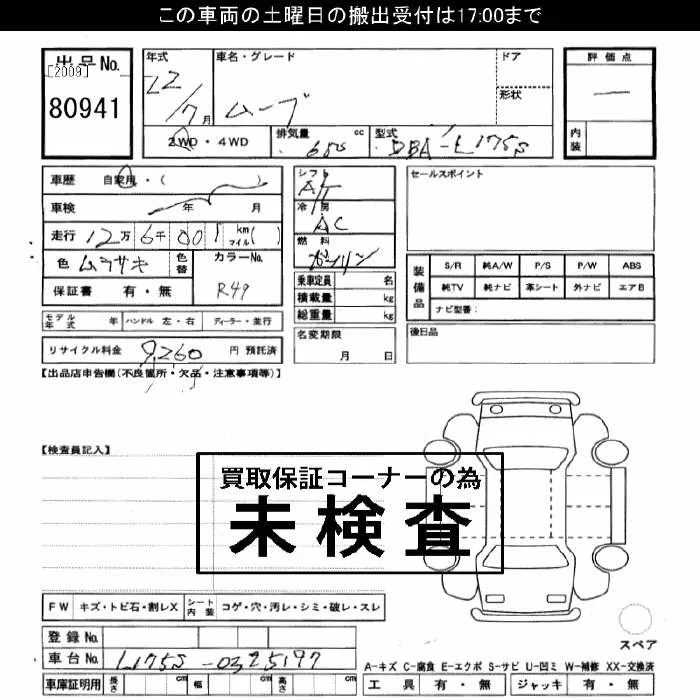 この車両の土曜日の搬出受付は17:00まで
出品No.
[2009]
80941
年式
22/7月
車名・グレード
ムーブ
ドア
形状
評価点
内装
2WD・4WD
排気量 cc
型式
DBA-L175S
車歴 自家用・( )
車検 年 月
走行 12万 6千 001 km マイル( )
色 ムラサキ 色替
カラーNo.
R49
保証書 有・無
シフト
AT
冷房
AC
燃料
ガソリン
乗車定員 名
積載量 kg
総重量 kg
セールスポイント
装備品
S/R 純A/W P/S P/W ABS
純TV 純ナビ 革シート 外ナビ エアB
ナビ型番:
モデル年式 年 ハンドル 左・右 ディーラー・並行
名変期限
月 日
後日品
リサイクル料金 9,260 円 預託済
【出品店申告欄(不良箇所・欠品・注意事項等)】
【検査員記入】
買取保証コーナーの為
未検査
FW キズ・トビ石・割レX シート内装 コゲ・穴・汚レ・シミ・破レ・スレ
スペア
登録No.
車台No. L175S-0325197
A-キズ C-腐食 E-エクボ S-サビ U-凹ミ W-補修 XX-交換済
車庫証明用 長さ cm 幅 cm 高さ cm
工具 有・無 ジャッキ 有・無